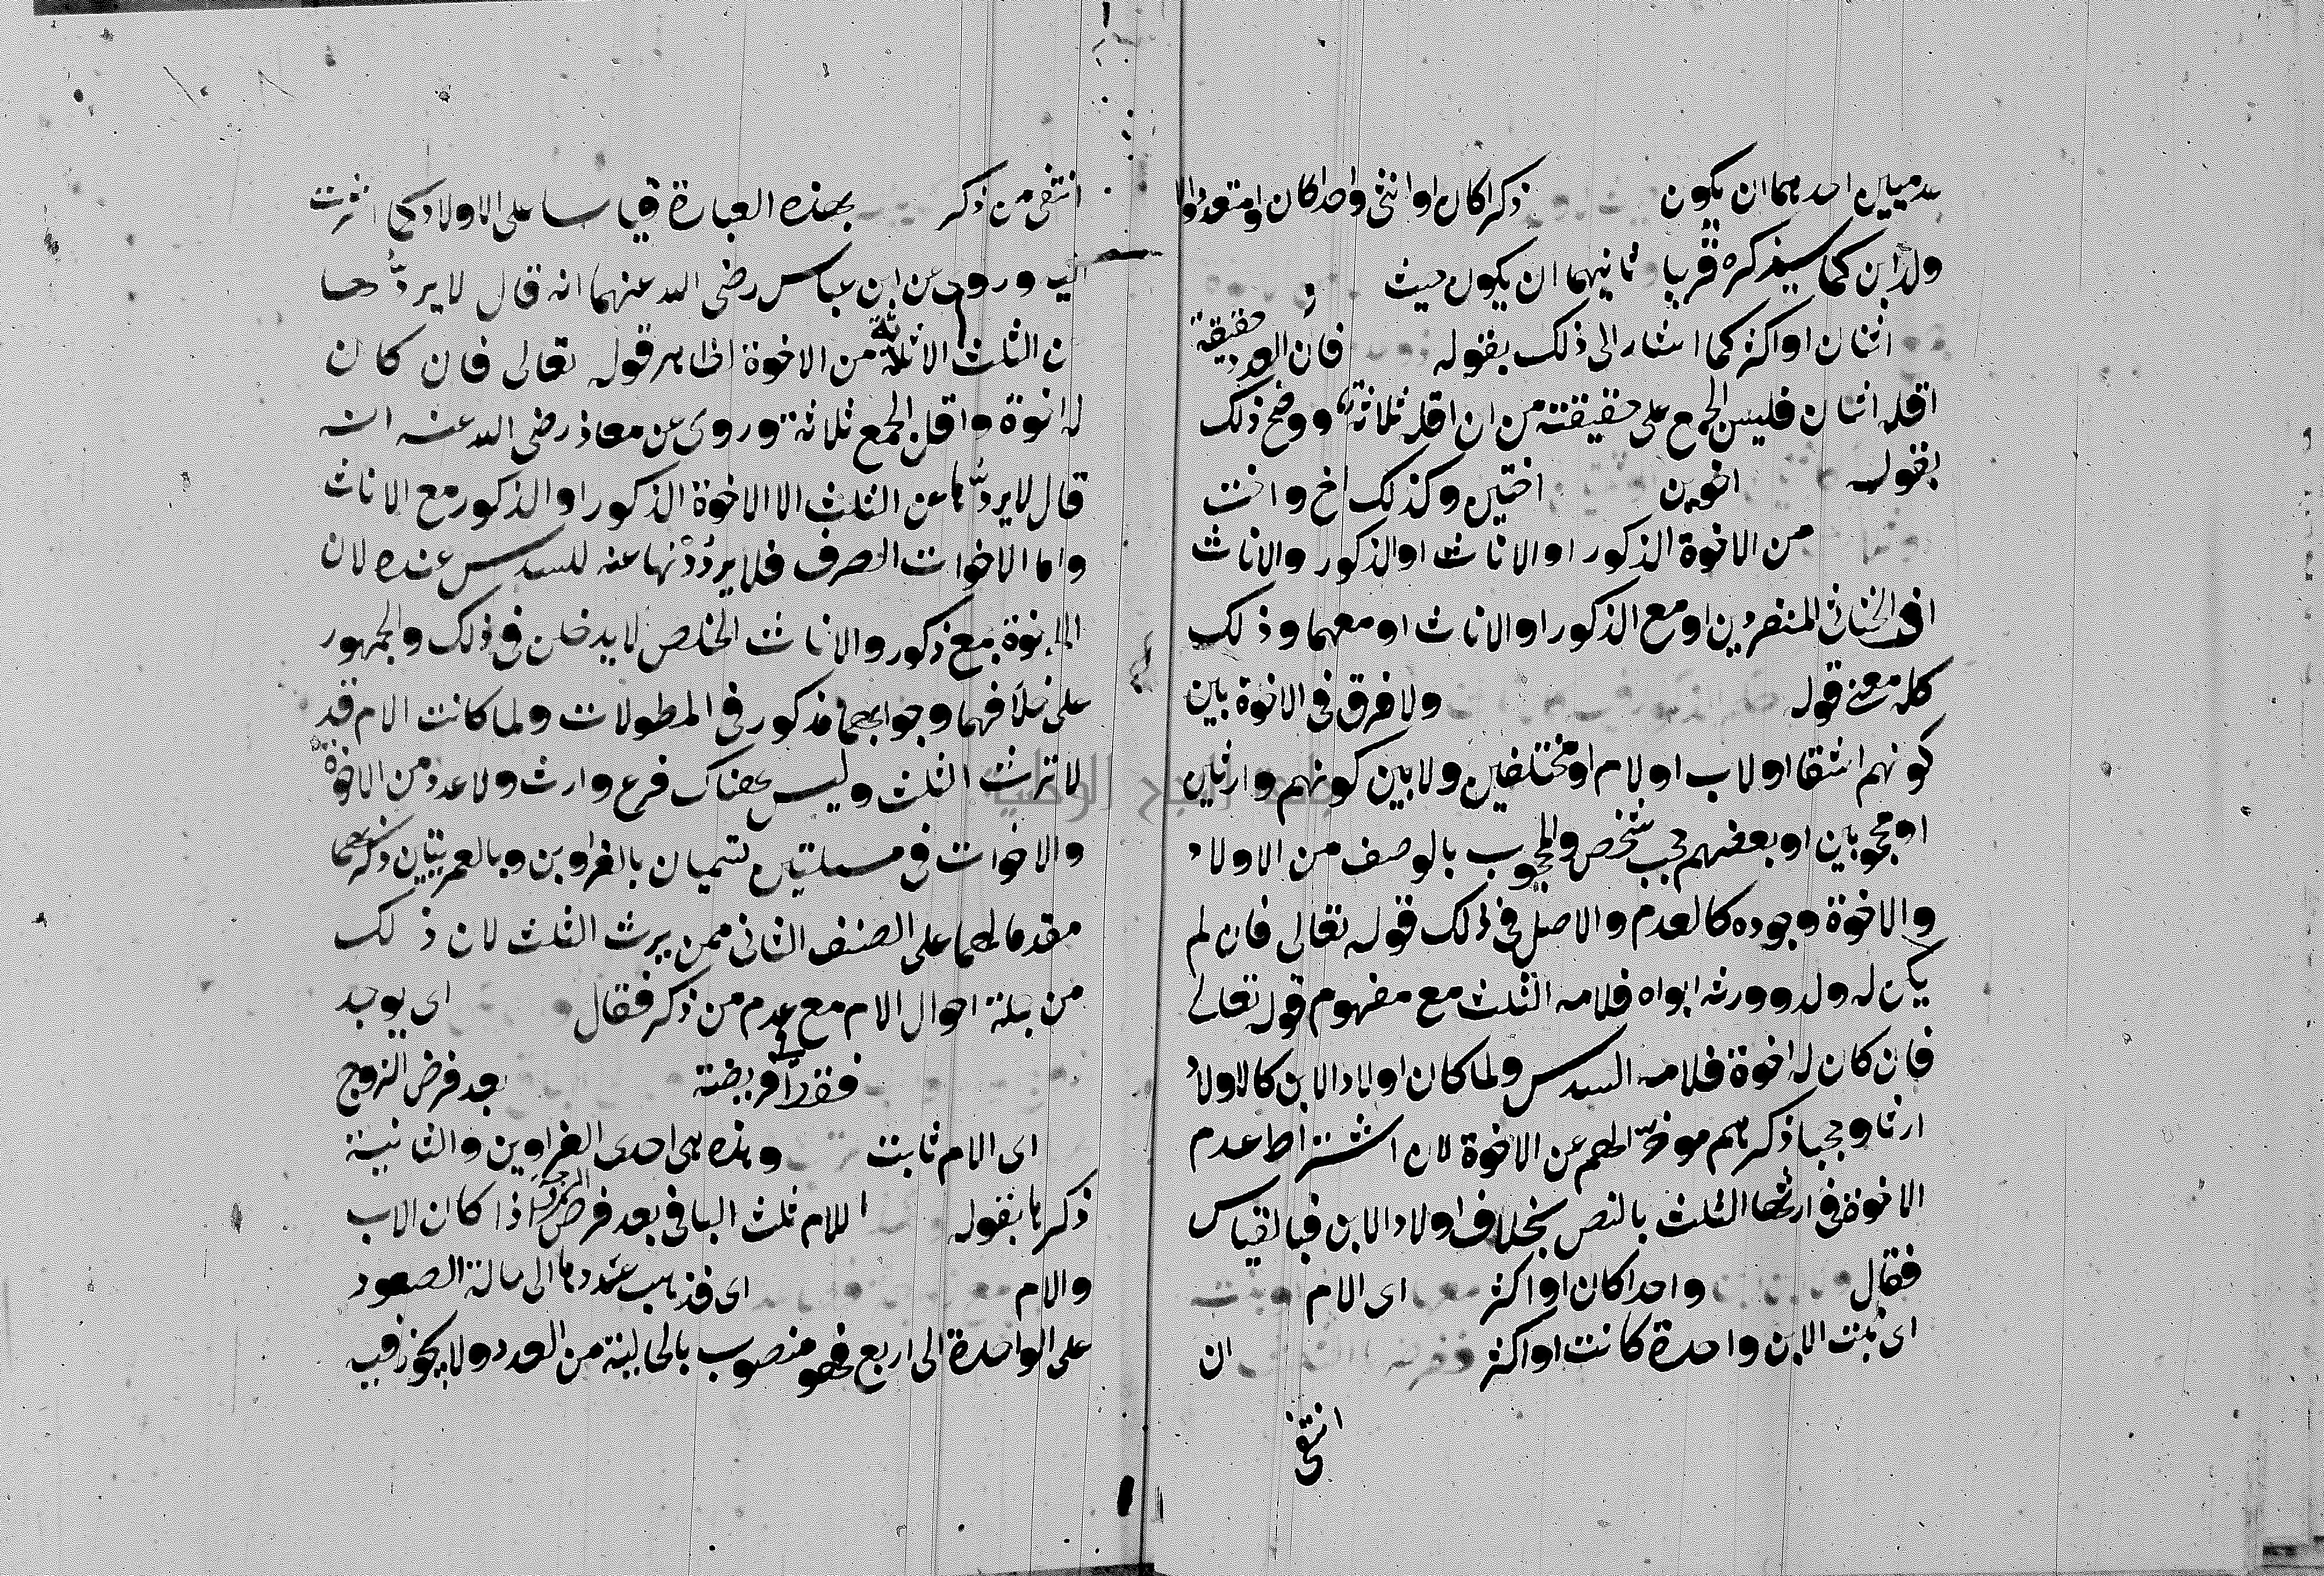 عدميين احدهما ان يكون ذكرا كان او انثى واحدا كان او متعددا او
ولد ابن كما سيذكره قريبا ثانيهما ان يكون حيث
اثنان او اكثر كما اشار الى ذلك بقوله فان العدد حقيقة
اقله اثنان فليس الجمع على حقيقته من ان اقله ثلاثة ووضح ذلك
بقوله اخوين اختين وكذلك اخ واخت
من الاخوة الذكور او الاناث او الذكور والاناث
او الخناثى المنفردين او مع الذكور او الاناث او معهما وذلك
كله معنى قوله ولا فرق في الاخوة بين
كونهم اشقا او لاب او لام او مختلفين ولا بين كونهم وارثين
او محجوبين او بعضهم حجب شخص والمحجوب بالوصف من الاولاد
والاخوة وجوده كالعدم والاصل في ذلك قوله تعالى فان لم
يكن له ولد وورثه ابواه فلامه الثلث مع مفهوم قوله تعالى
فان كان له اخوة فلامه السدس ولما كان اولاد الابن كالاولاد
ارثا وحجبا ذكرهم موخرا لهم عن الاخوة لان اشتراط عدم
الاخوة في ارثها الثلث بالنص بخلاف اولاد الابن فبالقياس
فقال واحدا كان او اكثر اى الام
اى بنت الابن واحدة كانت او اكثر ان
انتفى
انتفى من ذكر بهذه العبارة قياسا على الاولاد كما اشرت
اليه وروى عن ابن عباس رضى الله عنهما انه قال لا يردها
عن الثلث الا ثلاثة من الاخوة لظاهر قوله تعالى فان كان
له اخوة واقل الجمع ثلاثة وروى عن معاذ رضى الله عنه انه
قال لا يردها عن الثلث الا الاخوة الذكور او الذكور مع الاناث
واما الاخوات الصرف فلا يرددنها عنه للسدس عنده لان
الاخوة جمع ذكور والاناث الخلص لا يدخلن في ذلك والجمهور
على خلافهما وجوابهما مذكور في المطولات ولما كانت الام قد
لا ترث الثلث وليس هناك فرع وارث ولا عدد من الاخوة
والاخوات في مسئلتين تسميان بالغراوين وبالعمريتين ذكرهما
مقدما لهما على الصنف الثانى ممن يرث الثلث لان ذلك
من جملة احوال الام مع عدم من ذكر فقال اى يوجد
فقدرا فريضة بعد فرض الزوج
اى الام ثابت وهذه هى احدى الغراوين والثانية
ذكرها بقوله للام ثلث الباقى بعد فرض الزوجة اذا كان الاب
والام اى فذهب عددها الى حالة الصعود
على الواحدة الى اربع فهو منصوب بالحالية من العدد ولا يجوز فيه
جامعة النجاح الوطنية